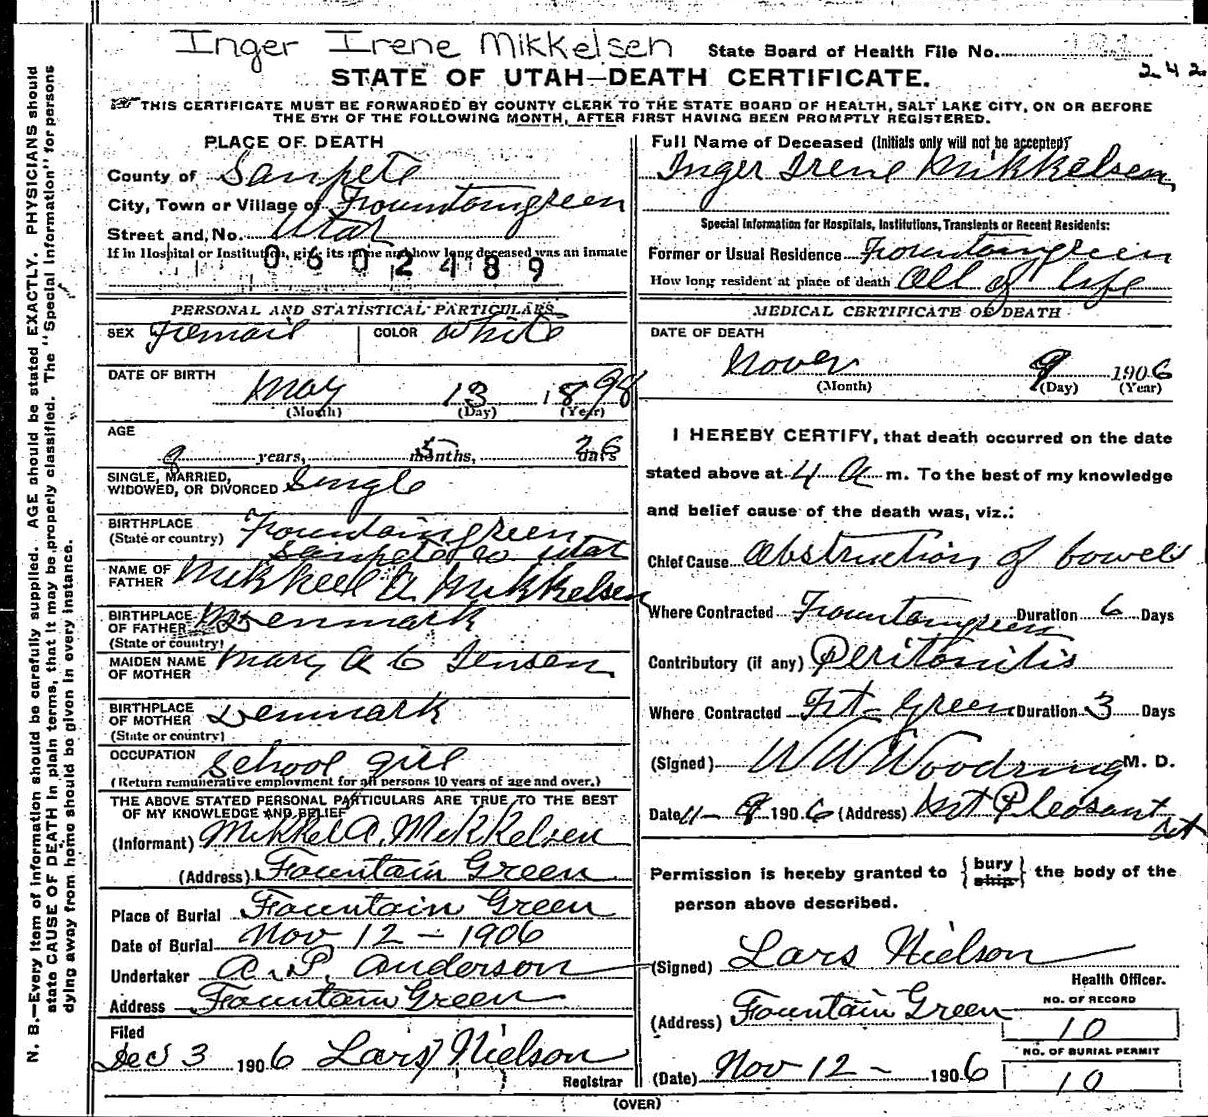 Inger Irene Mikkelsen State Board of Health File No.
242
STATE OF UTAH—DEATH CERTIFICATE.
THIS CERTIFICATE MUST BE FORWARDED BY COUNTY CLERK TO THE STATE BOARD OF HEALTH, SALT LAKE CITY, ON OR BEFORE
THE 5TH OF THE FOLLOWING MONTH, AFTER FIRST HAVING BEEN PROMPTLY REGISTERED.
N. B.—Every item of information should be carefully supplied. AGE should be stated EXACTLY. PHYSICIANS should
state CAUSE OF DEATH in plain terms, that it may be properly classified. The "Special Information" for persons
dying away from home should be given in every instance.
PLACE OF DEATH
County of Sanpete
City, Town or Village of Fountaingreen
Street and No. Utah
If in Hospital or Institution, give its name and how long deceased was an inmate
0602489
PERSONAL AND STATISTICAL PARTICULARS
SEX Femail COLOR White
DATE OF BIRTH
May 13 1898
(Month) (Day) (Year)
AGE
8 years, 5 months, 26 days
SINGLE, MARRIED,
WIDOWED, OR DIVORCED Single
BIRTHPLACE Fountaingreen
(State or country) Sanpete Co Utah
NAME OF
FATHER Mikkeel A Mikkelsen
BIRTHPLACE
OF FATHER Denmark
(State or country)
MAIDEN NAME
OF MOTHER Mary A C Jensen
BIRTHPLACE
OF MOTHER Denmark
(State or country)
OCCUPATION School girl
(Return remunerative employment for all persons 10 years of age and over.)
THE ABOVE STATED PERSONAL PARTICULARS ARE TRUE TO THE BEST
OF MY KNOWLEDGE AND BELIEF
(Informant) Mikkel A. Mikkelsen
(Address) Fountain Green
Place of Burial Fountain Green
Date of Burial Nov 12 - 1906
Undertaker A. P. Anderson
Address Fountain Green
Filed
Dec 3 1906 Lars Nielson
Registrar
Full Name of Deceased (Initials only will not be accepted)
Inger Irene Mikkelsen
Special Information for Hospitals, Institutions, Transients or Recent Residents:
Former or Usual Residence Fountaingreen
How long resident at place of death All of life
MEDICAL CERTIFICATE OF DEATH
DATE OF DEATH
Nover 9 1906
(Month) (Day) (Year)
I HEREBY CERTIFY, that death occurred on the date
stated above at 4 A m. To the best of my knowledge
and belief cause of the death was, viz.:
Chief Cause Obstruction of bowels
Where Contracted Fountaingreen Duration 6 Days
Contributory (if any) Peritonitis
Where Contracted Fnt-Green Duration 3 Days
(Signed) W W Woodring M. D.
Date 11-9 1906 (Address) Mt Pleasant Ut
Permission is hereby granted to { bury ship } the body of the
person above described.
(Signed) Lars Nielson
Health Officer.
(Address) Fountain Green
NO. OF RECORD
10
(Date) Nov 12 - 1906
NO. OF BURIAL PERMIT
10
(OVER)